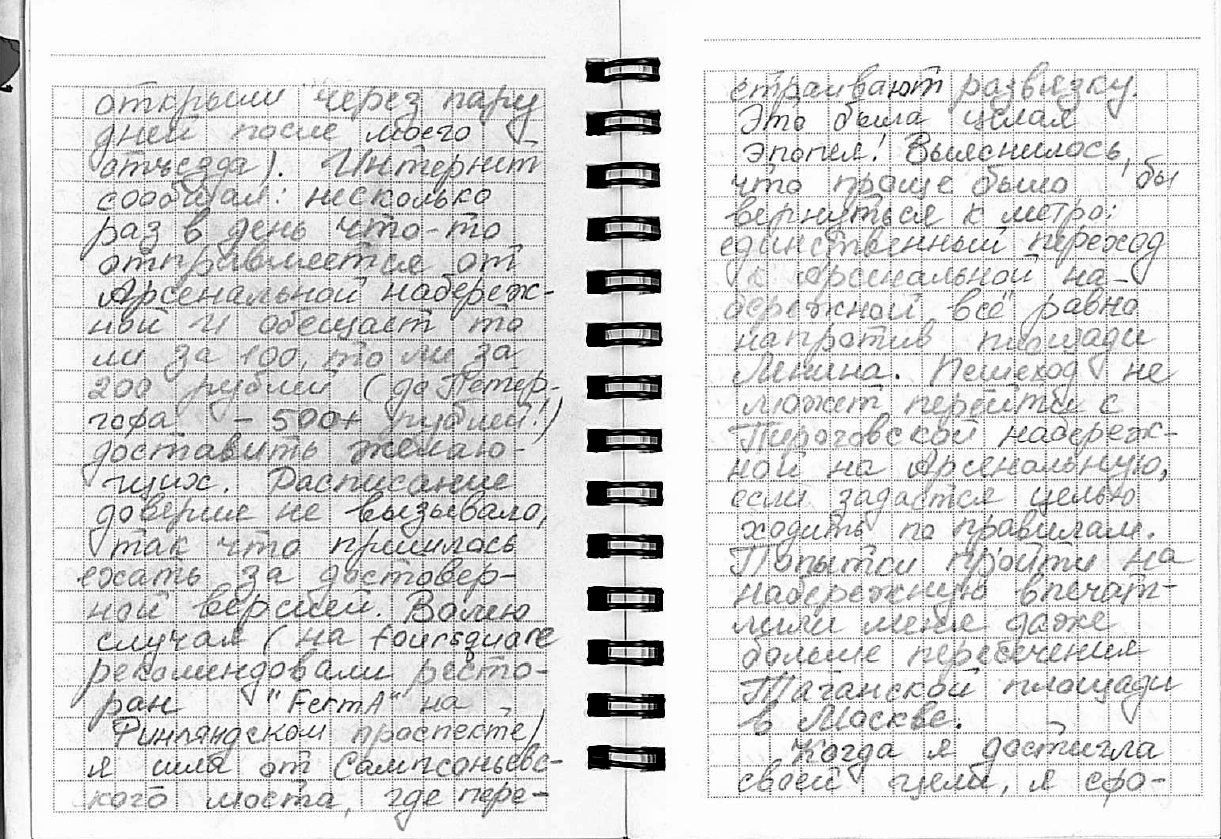 открыли через пару
дней после моего
отъезда). Интернет
сообщал: несколько
раз в день что-то
отправляется от
Арсенальной набереж-
ной и обещает то
ли за 100, то ли за
200 рублей (до Петер-
гофа - 500+ рублей!)
доставить желаю-
щих. Расписание
доверие не вызывало,
так что пришлось
ехать за достовер-
ной версией. Волею
случая (на foursquare
рекомендовали ресто-
ран "FermA" на
Финляндском проспекте)
я шла от Сампсоньевс-
кого моста, где пере-
страивают развязку.
Это была целая
эпопея! Выяснилось,
что проще было бы
вернуться к метро:
единственный переход
к Арсенальной на-
бережной всё равно
напротив площади
Ленина. Пешеход не
может перейти с
Пироговской набереж-
ной на Арсенальную,
если задастся целью
ходить по правилам.
Попытки пройти на
набережную впечат-
лили меня даже
больше пересечения
Таганской площади
в Москве.
Когда я достигла
своей цели, я сфо-